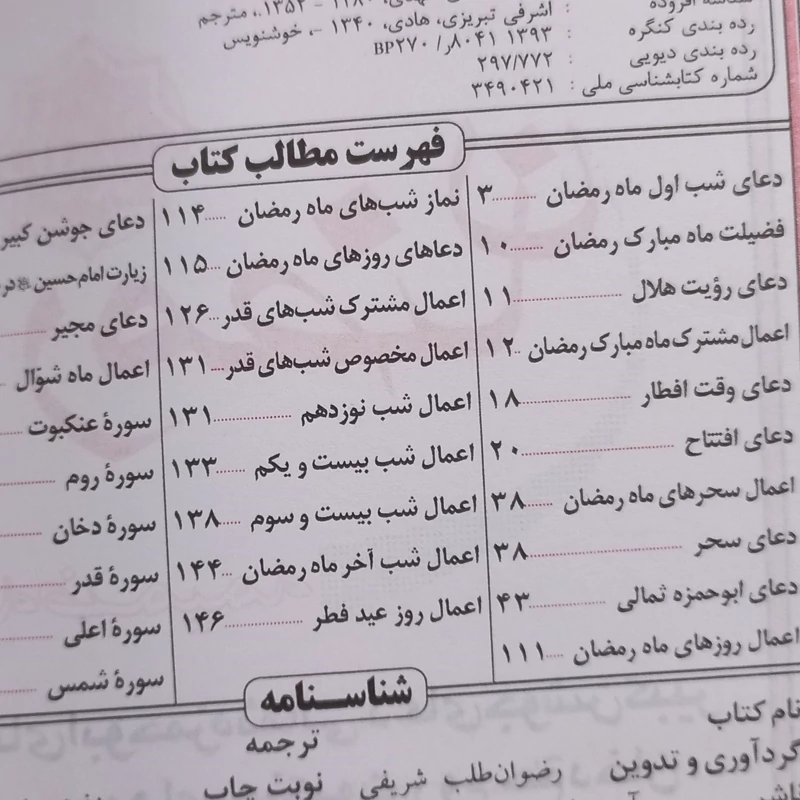 اشرفی تبریزی، هادی، ۱۳۴۰ -، خوشنویس
رده بندی کنگره : ۱۳۹۳ ۸۰۴۱ر/ BP۲۷۰
رده بندی دیویی : ۲۹۷/۷۷۲
شماره کتابشناسی ملی : ۳۴۹۰۴۲۱
فهرست مطالب کتاب
دعای شب اول ماه رمضان ۳
فضیلت ماه مبارک رمضان ۱۰
دعای رؤیت هلال ۱۱
اعمال مشترک ماه مبارک رمضان ۱۲
دعای وقت افطار ۱۸
دعای افتتاح ۲۰
اعمال سحرهای ماه رمضان ۳۸
دعای سحر ۳۸
دعای ابوحمزه ثمالی ۴۳
اعمال روزهای ماه رمضان ۱۱۱
نماز شب‌های ماه رمضان ۱۱۴
دعاهای روزهای ماه رمضان ۱۱۵
اعمال مشترک شب‌های قدر ۱۲۶
اعمال مخصوص شب‌های قدر ۱۳۱
اعمال شب نوزدهم ۱۳۱
اعمال شب بیست و یکم ۱۳۳
اعمال شب بیست و سوم ۱۳۸
اعمال شب آخر ماه رمضان ۱۴۴
اعمال روز عید فطر ۱۴۶
دعای جوشن کبیر
زیارت امام حسین در
دعای مجیر
اعمال ماه شوّال
سورهٔ عنکبوت
سورهٔ روم
سورهٔ دخان
سورهٔ قدر
سورهٔ اعلی
سورهٔ شمس
شناسنامه
نام کتاب
ترجمه
گردآوری و تدوین رضوان‌طلب شریفی
نوبت چاپ